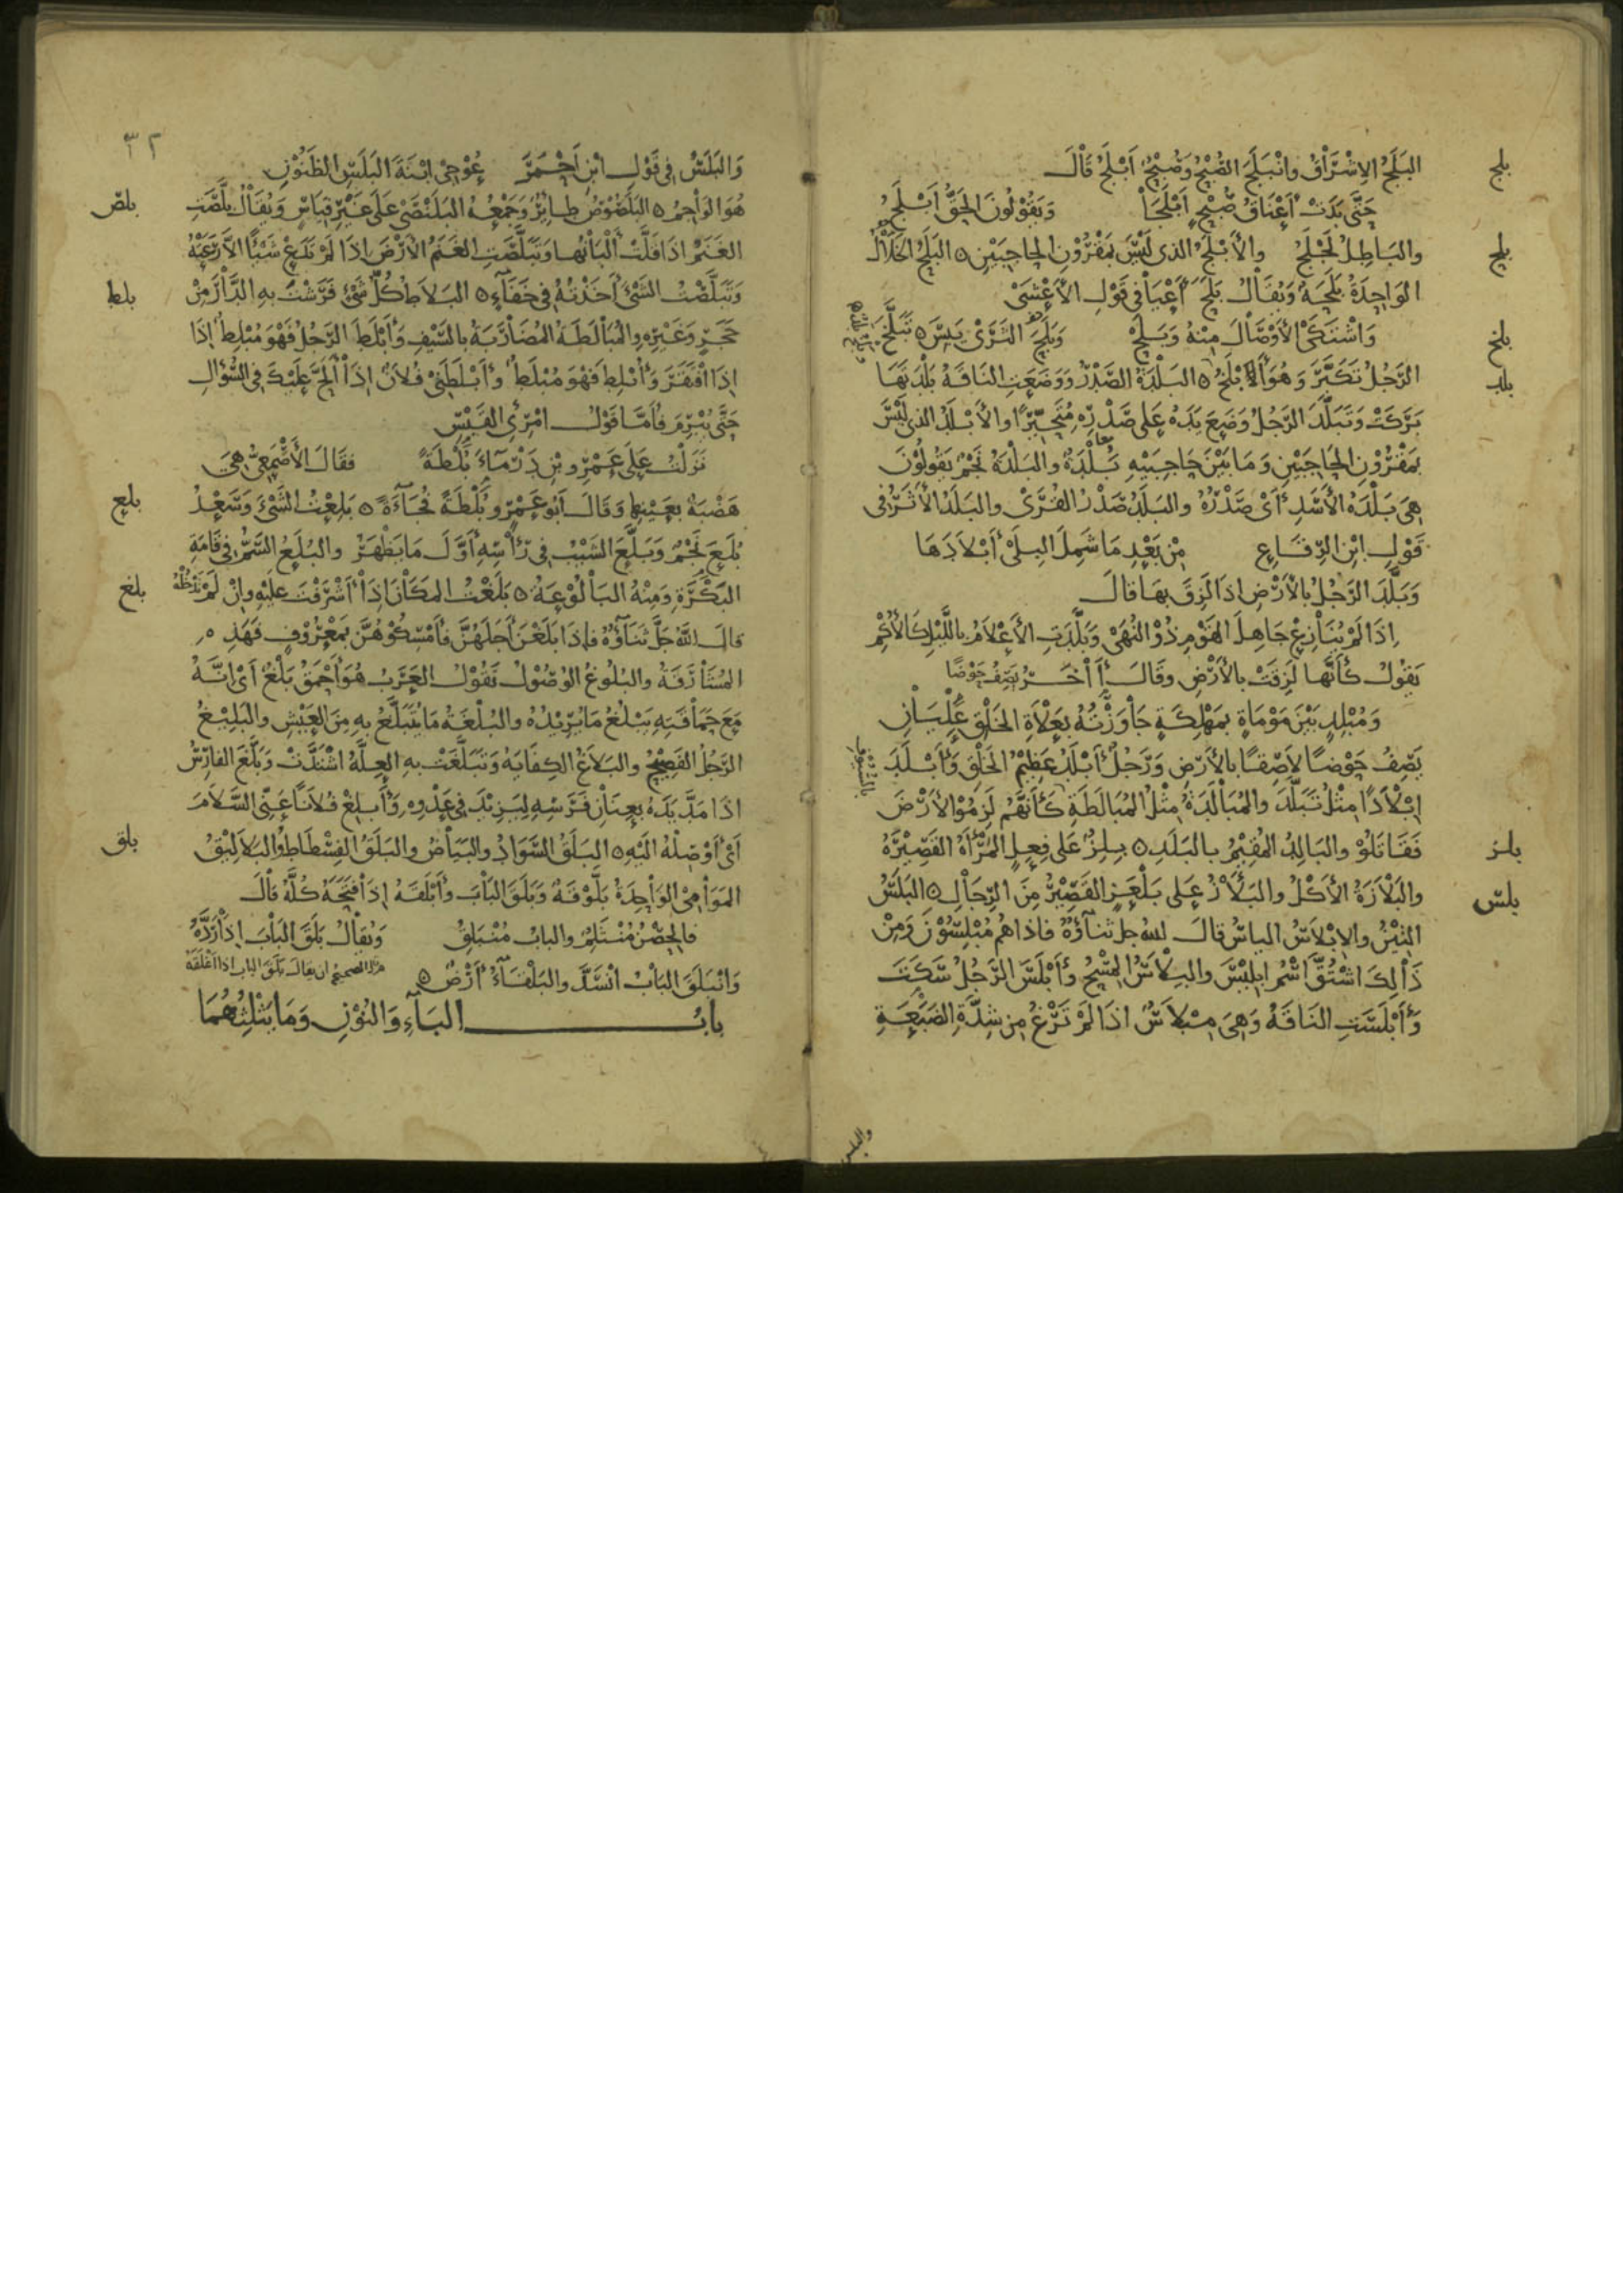 بلج
البَلَجُ الإِشْرَاقُ وانْبَلَجَ الصُّبْحُ وَصُبْحٌ أَبْلَجُ قَالَ
حَتَّى بَدَتْ أَعْنَاقُ صُبْحٍ أَبْلَجَا وَيَقُولُونَ الحَقُّ أَبْلَجُ
بلح
والبَاطِلُ لَجْلَجٌ والأَبْلَجُ الذى لَيْسَ بمَقْرُوْنِ الحاجِبَيْنِ ٥ البَلَحُ الخَلَالُ
الوَاحِدَةُ بَلَحَةٌ وَيُقَالُ بَلَحَ أَعْيَا فى قَوْلِ الأَعْشَى
بلخ
وَاشْتَكَى الأَوْصَالَ مِنْهُ وَبَلَحْ وَبَلَحَ الثَّرَى يَبِسَ ٥ تَبَلَّخَ
بلد
الرَّجُلُ تَكَبَّرَ وَهُوَ أَبْلَخُ ٥ البَلْدَةُ الصَّدْرُ وَوَضَعَتِ النَاقَةُ بَلْدَتَهَا
بَرَكَتْ وَتَبَلَّدَ الرَّجُلُ وَضَعَ يَدَهُ عَلى صَدْرِهِ مُتَحَيِّرًا والأَبْلَدُ الذى لَيْسَ
بمَقْرُوْنِ الحَاجِبَيْنِ وَمَا بَيْنَ حَاجِبَيْهِ بُلْدَةٌ والبَلْدَةُ نَجْمٌ يَقُولُوْنَ
هِىَ بَلْدَةُ الأَسَدِ أَىْ صَدْرُهُ والبَلَدُ صَدْرُ القُرَى والبَلَدُ الأَثَرُ فى
قَوْلِ ابْنِ الرِّقَاعِ مِنْ بَعْدِ مَا شَمِلَ البِلَى أَبْلَادَهَا
وَبَلَّدَ الرَّجُلُ بالأَرْضِ اذَا لَزِقَ بهَا قالَ
اِذَا لَمْ يُنَازِعْ جَاهِلَ القَوْمِ ذُوْ النُّهَى وَبَلَّدَتِ الأَعْلَامُ باللَّيْلِ كَالأَكْمِ
يَقُولُ كَأَنَّهَا لَزِقَتْ بالأَرْضِ وقَالَ آخَرُ يَصِفُ حَوْضًا
وَمُبْلِدٍ بَيْنَ مَوْمَاةٍ بمَهْلِكَةٍ جَاوَزْتُهُ بِعَلَاةِ الخَلْقِ عِلْيَانِ
يَصِفُ حَوْضًا لَاصِقًا بالأَرْضِ وَرَجُلٌ أَبْلَدُ عَظِيْمُ الخَلْقِ وَأَبْلَدَ
اِبْلَادًا مِثْلُ تَبَلَّدَ والمُبَالَدَةُ مِثْلُ المُبَالَطَةِ كَأَنَّهُمْ لَزِمُوْا الأَرْضَ
بلز
فَقَاتَلُوْ والبَالِدُ المُقِيْمُ بالبَلَدِ ٥ بِلِزٌ عَلى فِعِلٍ المَرْأَةُ القَصِيْرَةُ
بلس
والبَلْأَزَةُ الأَكْلُ والبَلْأَزُ عَلى بَلْعَزٍ القَصِيْرُ مِنَ الرِّجَالِ ٥ البَلَسُ
التِيْنُ والاِبْلَاسُ الياسُ قالَ الله جل ثناؤهُ فاذا هُم مُبْلِسُوْنَ وَمِنْ
ذَالِكَ اشْتُقَّ اسْمُ ابلِيْسَ والبِلَاسُ المِسْحُ وأَبْلَسَ الرَّجُلُ سَكَتَ
وَأَبْلَسَتِ النَاقَةُ وَهِىَ مِبْلَاسٌ اذَا لَمْ تَرْغُ مِن شِدَّةِ الضَبَعَةِ
والبلس
٣٢
وَالبَلَسُ فِى قَوْلِ ابْنِ أَحْمَرَ عُوْجِىْ ابْنَةَ البَلَسِ الظَنُوْنِ
بلص
هُوَ الوَاجِمُ ٥ البَلَصُوْصُ طَائِرٌ وَجَمْعُهُ البَلَنْصَى عَلَى غَيْرِ قِيَاسٍ وَيُقَالُ بَلَّصَتِ
الغَنَمُ اذَا قَلَّتْ أَلْبَانُهَا وَتَبَلَّصَتِ الغَنَمُ الأَرْضَ اذَا لَمْ تَدَعْ شَيْئًا الاَّ رَعَتْهُ
بلط
وَتَبَلَّصْتُ الشَىْءَ أَخَذْتُهُ فِى خَفَاءٍ ٥ البَلَاطُ كُلُّ شَىْءٍ فَرَشْتَ بهِ الدَّارَ مِنْ
حَجَرٍ وَغَيْرِهِ والمُبَالَطَةُ المُضَارَبَةُ بالسَّيْفِ وَأَبْلَطَ الرَّجُلُ فَهْوَ مُبْلِطٌ اِذَا
اِذَا افْتَقَرَ وَأُبْلِطَ فَهْوَ مُبْلَطٌ وأَبْلَطَنِىْ فُلَانٌ اِذَا أَلَحَّ عَلَيْكَ فى السُّؤَالِ
حَتَّى يُبْرِمَ فأَمَّا قَوْلُ امْرِئِ القَيْسِ
نَزَلْتُ عَلى عَمْرِو بْنِ دَرْمَاءَ بُلْطَةً فقَالَ الأَصْمَعِىُّ هِىَ
بلع
هَضْبَةٌ بعَيْنِهَا وَقَالَ أَبُو عَمْرٍو بُلْطَةً فُجَاءَةً ٥ بَلِعْتُ الشَىْءَ وَسَعْدُ
بُلَعَ نَجْمٌ وَبَلَّعَ الشَيْبُ فِى رَأْسِهِ أَوَّلَ مَا يَظْهَرُ والبُلَعُ السَّمُّ فِى قَامَةِ
بلغ
البَكْرَةِ وَمِنْهُ البَالُوْعَةُ ٥ بَلَغْتُ المَكَانَ اِذَا أَشْرَفْتَ عليْهِ وانْ لَمْ تَدْخُلْهُ
قالَ اللهُ جَلَّ ثَنَاؤُهُ فاِذَا بَلَغْنَ أَجَلَهُنَّ فأَمْسِكُوْهُنَّ بمَعْرُوْفٍ فَهَذِه
المُشَارَفَةُ والبُلُوغُ الوُصُوْلُ تَقُوْلُ العَرَبُ هُوَ أَحْمَقُ بَلْغٌ أَىْ اِنَّهُ
مَعَ حَمَاقَتِهِ يَبْلُغُ مَا يُرِيْدُهُ والبُلْغَةُ مَا يُتَبَلَّغُ بهِ مِنَ العَيْشِ والبَلِيْغُ
الرَّجُلُ الفَصِيْحُ والبَلَاغُ الكِفَايَةُ وَتَبَلَّغَتْ بهِ العِلَّةُ اشْتَدَّتْ وَبَلَّغَ الفَارِسُ
اذَا مَدَّ يَدَهُ بعِنَانِ فَرَسِهِ لِيَزِيْدَ فِى عَدْوِهِ وَأَبْلِغْ فُلَانًا عَنِّى السَّلَامَ
بلق
أَىْ أَوْصِلْهُ الَيْهِ ٥ البَلَقُ السَّوَادُ والبَيَاضُ والبَلَقُ الفِسْطَاطُ والبَلَالِيْقُ
المَوَامِىْ الوَاحِدَةُ بَلُّوْقَةٌ وَبَلَقَ البَابَ وَأَبْلَقَهُ اِذَا فَتَحَهُ كُلَّهُ قالَ
فالحِصْنُ مُنْثَلِمٌ والبابُ مُنْبَلِقُ وَيُقالُ بَلَقَ البَابَ اِذَا رَدَّهُ
وَانْبَلَقَ البَابُ انْسَدَّ والبَلْقَاءُ أَرْضٌ ٥
بابُ البَاءِ وَالنُوْنِ وَمَا يَثْلِثُهُمَا